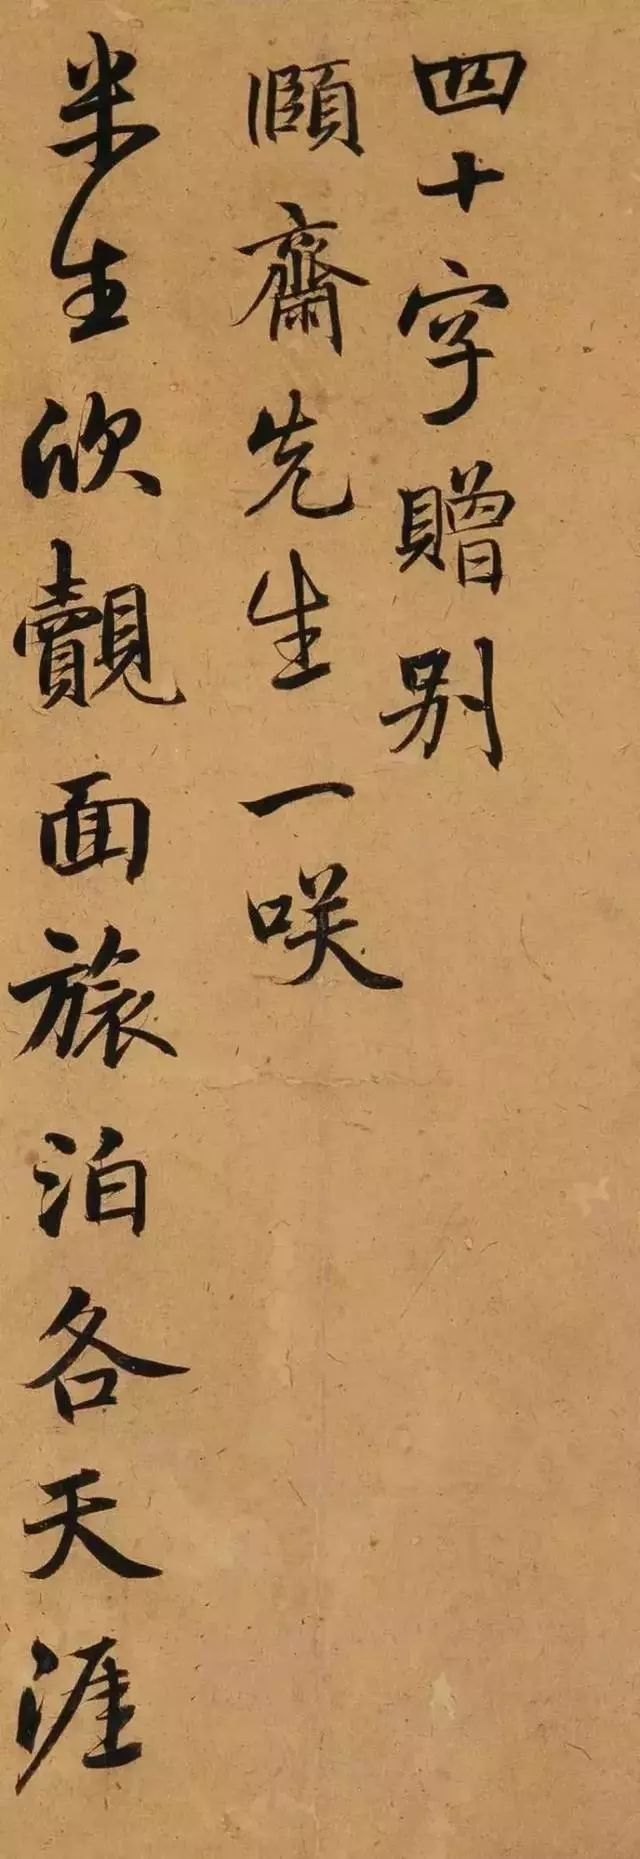 四十字贈别
頤齋先生一咲
半生欣覿面旅泊各天涯